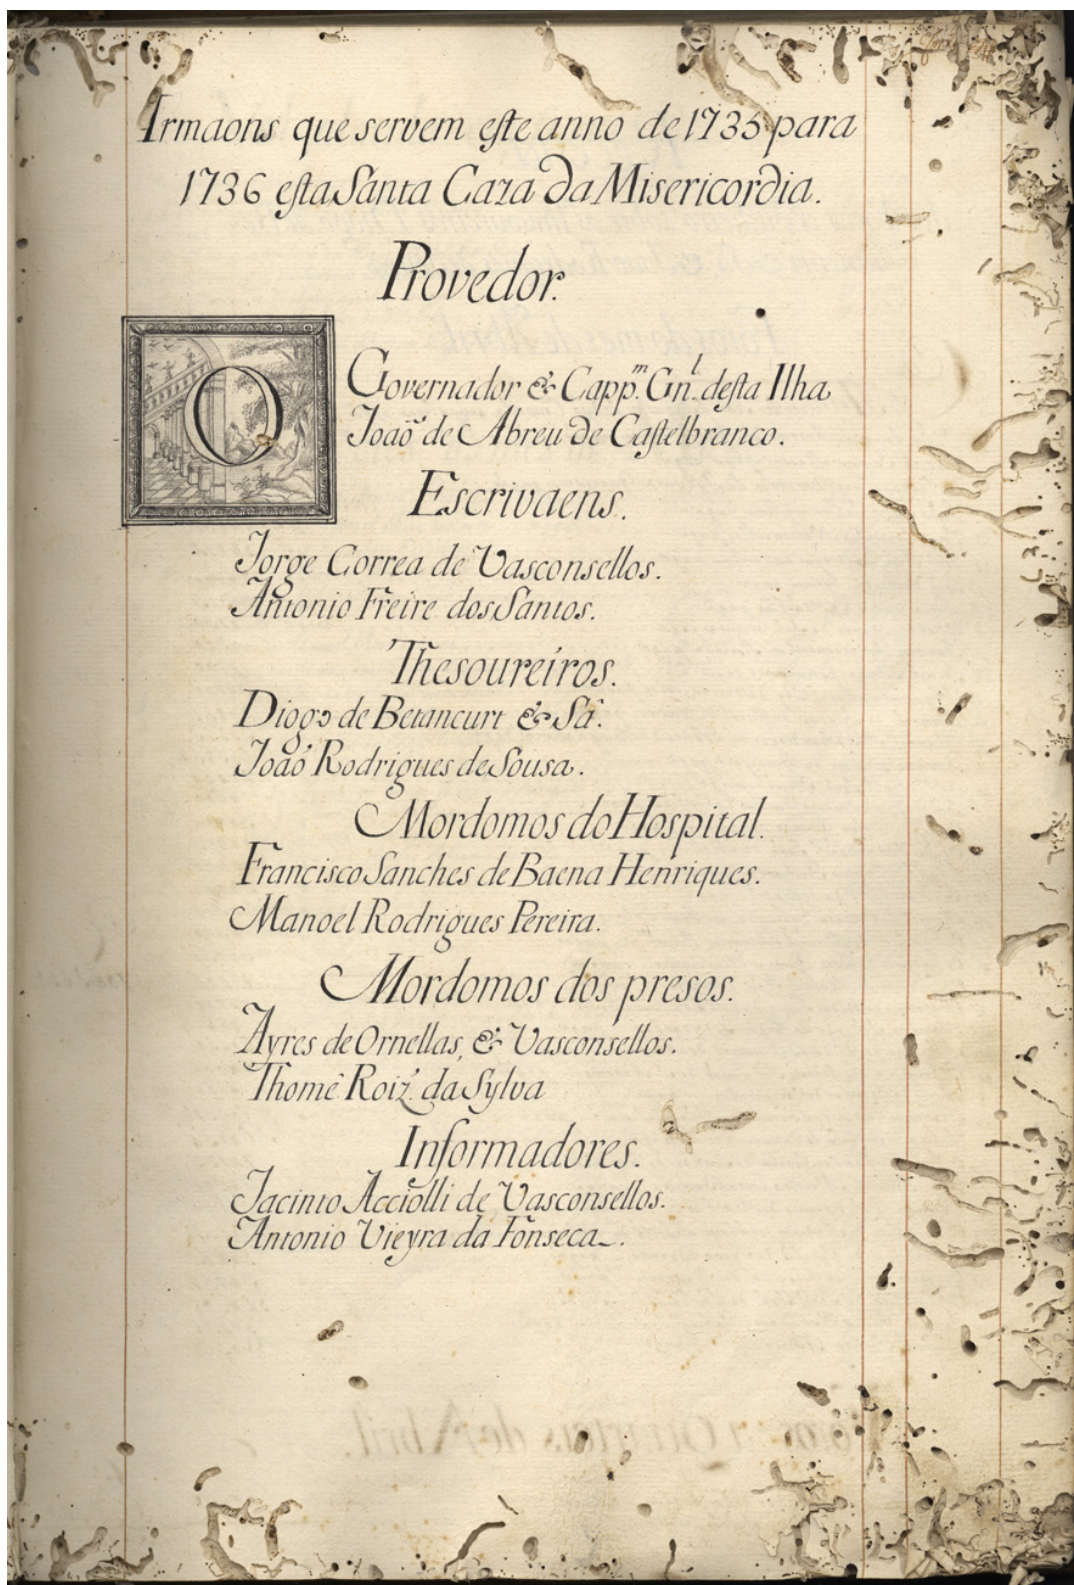 Irmaons que servem este anno de 1735 para
1736 esta Santa Caza da Misericordia.
Provedor.
O Governador & Capp.ᵐ Gn.ˡ desta Ilha
Joaõ de Abreu de Castelbranco.
Escrivaens.
Jorge Correa de Vasconsellos.
Antonio Freire dos Santos.
Thesoureiros.
Diogo de Betancurt & Sâ.
Joaõ Rodrigues de Sousa.
Mordomos do Hospital.
Francisco Sanches de Baena Henriques.
Manoel Rodrigues Pereira.
Mordomos dos presos.
Ayres de Ornellas, & Vasconsellos.
Thomê Roiz. da Sylva
Informadores.
Jacinto Acciolli de Vasconsellos.
Antonio Vieyra da Fonseca.